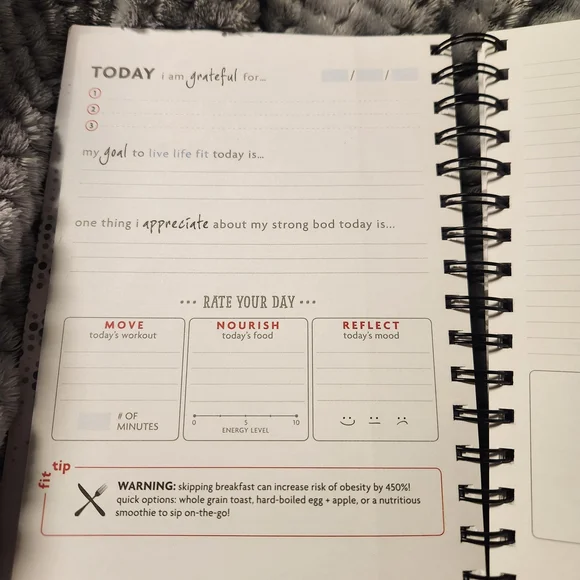 TODAY i am grateful for...
/ /
1
2
3
my goal to live life fit today is...
one thing i appreciate about my strong bod today is...
••• RATE YOUR DAY •••
MOVE
today's workout
# OF
MINUTES
NOURISH
today's food
0 5 10
ENERGY LEVEL
REFLECT
today's mood
fit tip
WARNING: skipping breakfast can increase risk of obesity by 450%!
quick options: whole grain toast, hard-boiled egg + apple, or a nutritious
smoothie to sip on-the-go!